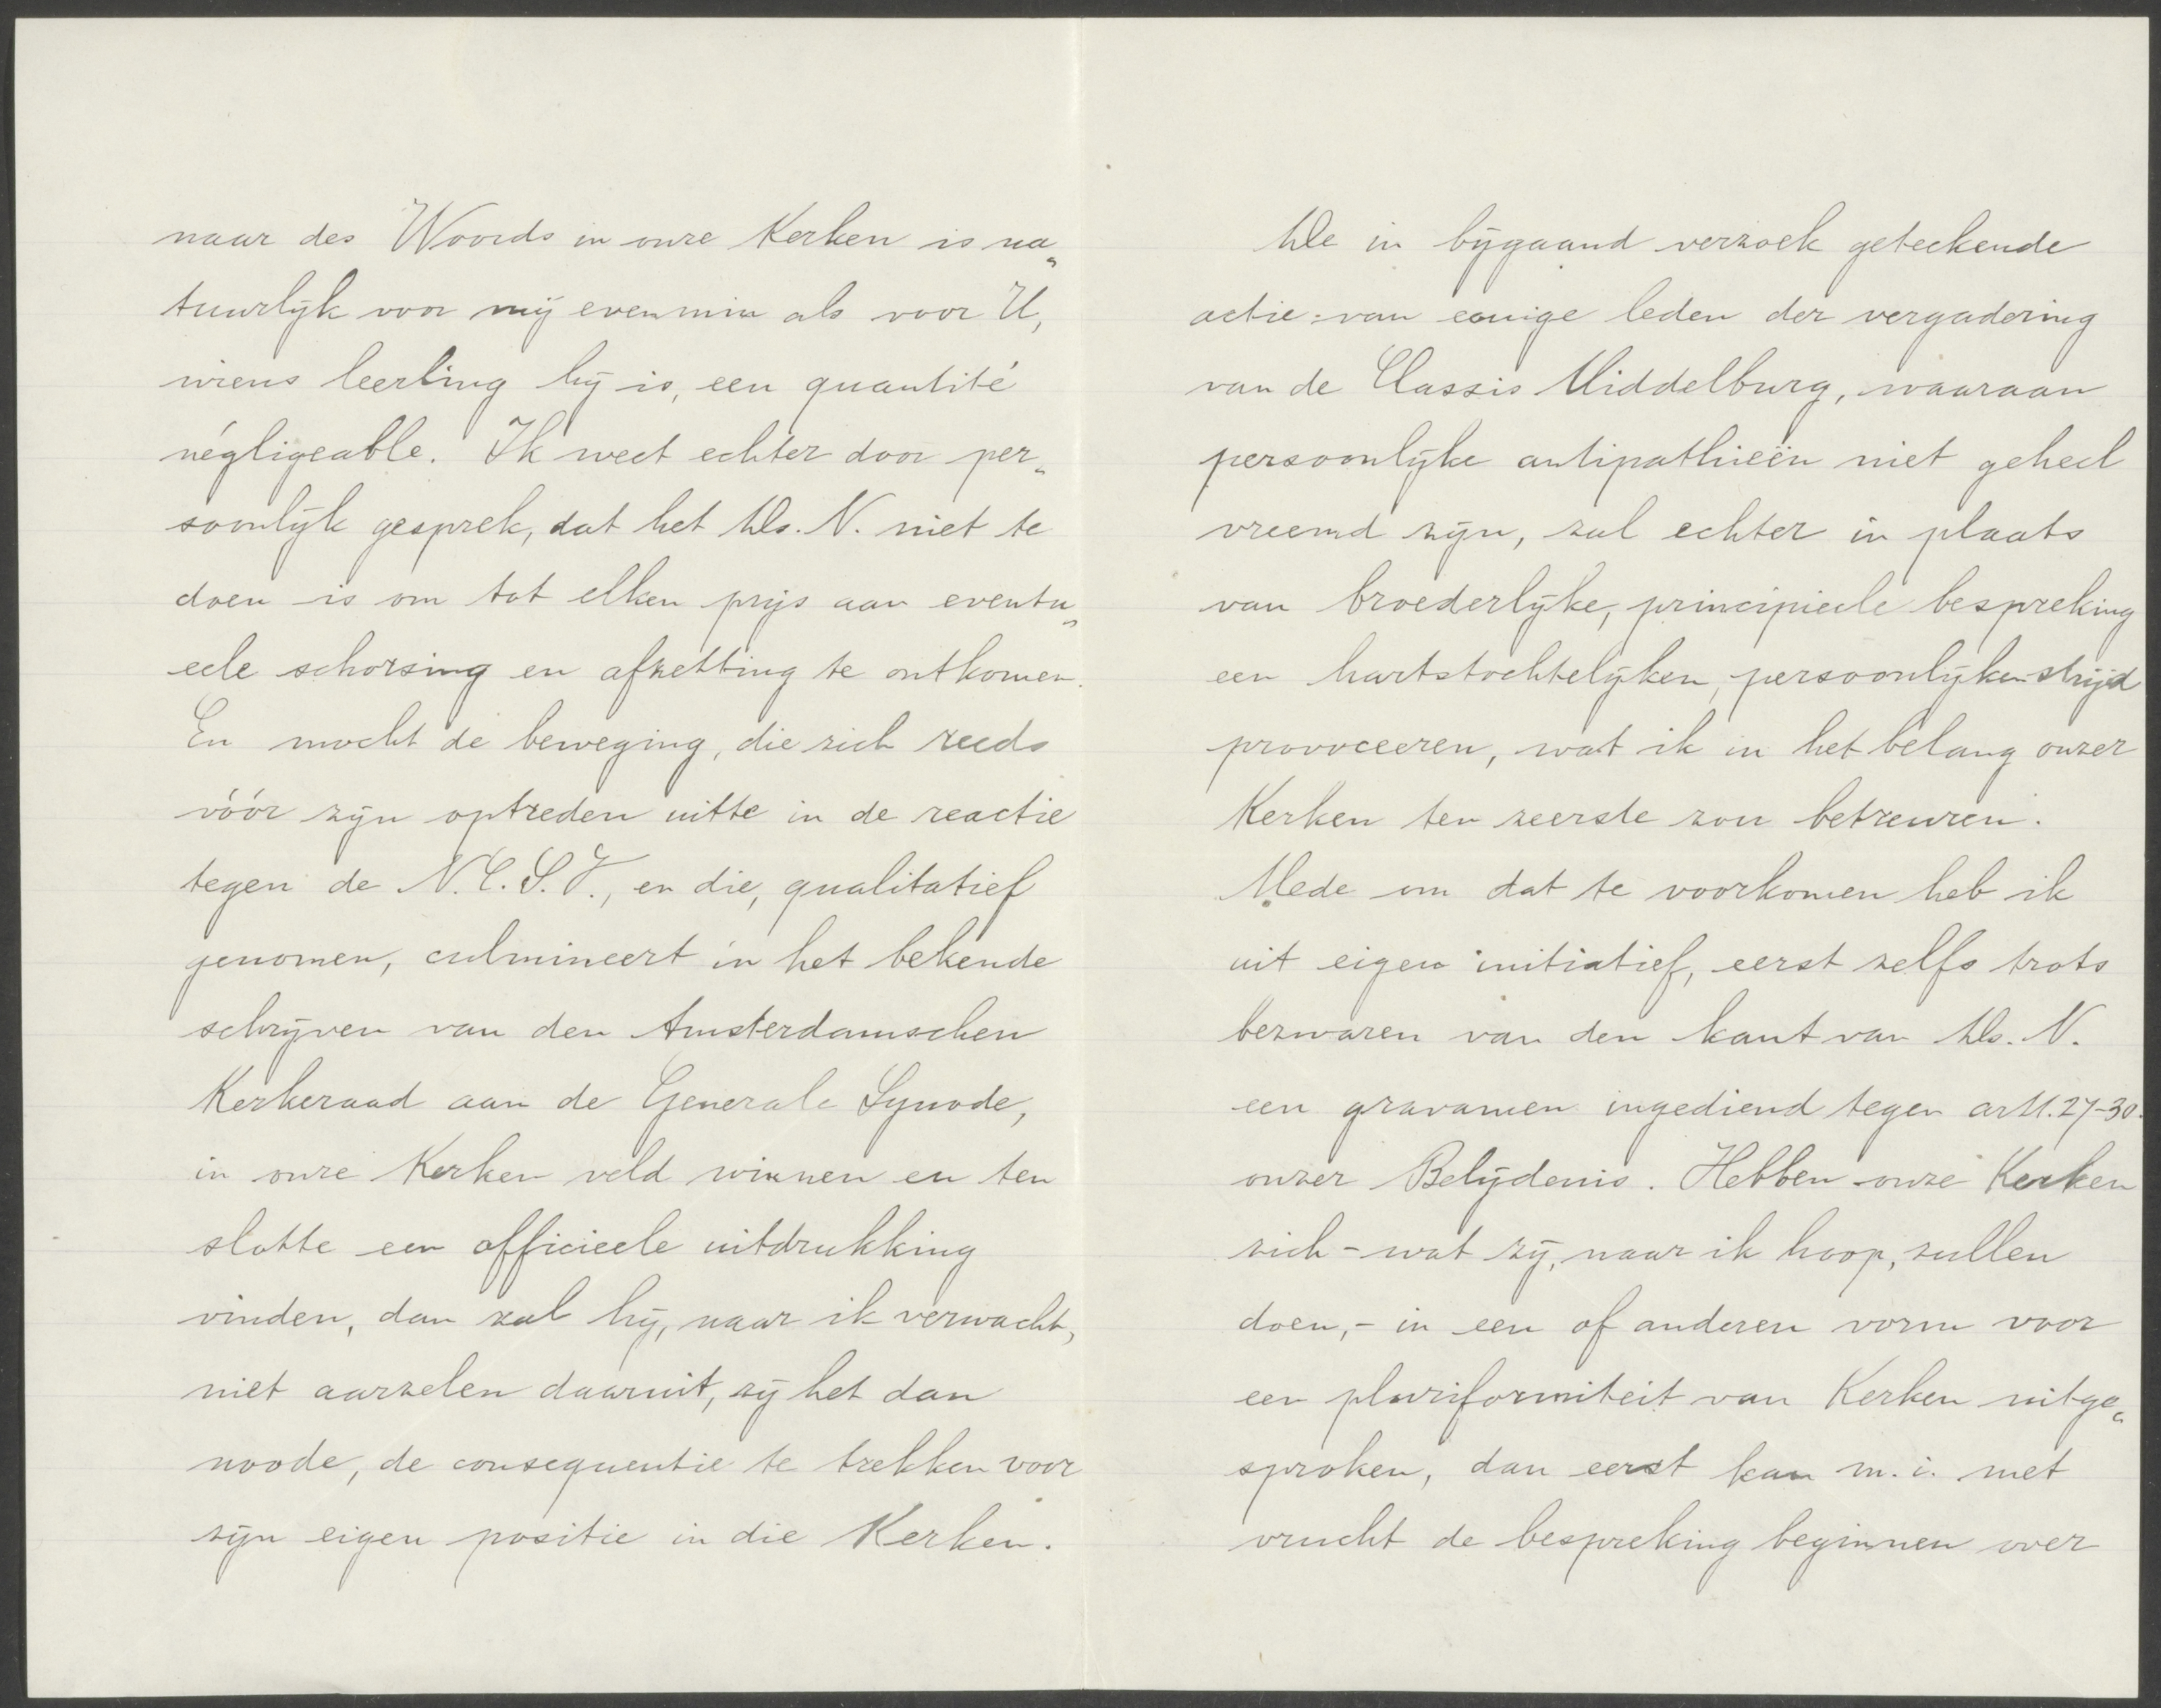 naar des Woords in onze Kerken is na„
tuurlijk voor mij evenmin als voor U,
wiens leerling hij is, een quantité
négligeable. Ik weet echter door per„
soonlijk gesprek, dat het Ds. N. niet te
doen is om tot elken prijs aan eventu„
eele schorsing en afzetting te ontkomen.
En mocht de beweging, die zich reeds
vóór zijn optreden uitte in de reactie
tegen de N.C.S.V., en die, qualitatief
genomen, culmineert in het bekende
schrijven van den Amsterdamschen
Kerkeraad aan de Generale Synode,
in onze Kerken veld winnen en ten
slotte een officieele uitdrukking
vinden, dan zal hij, naar ik verwacht,
niet aarzelen daaruit, zij het dan
noode, de consequentie te trekken voor
zijn eigen positie in die Kerken.
De in bijgaand verzoek geteekende
actie van eenige leden der vergadering
van de Classis Middelburg, waaraan
persoonlijke antipathieën niet geheel
vreemd zijn, zal echter in plaats
van broederlijke, principieele bespreking
een hartstochtelijken, persoonlijken strijd
provoceeren, wat ik in het belang onzer
Kerken ten zeerste zou betreuren.
Mede om dat te voorkomen heb ik
uit eigen initiatief, eerst zelfs trots
bezwaren van den kant van Ds. N.
een gravamen ingediend tegen artt. 27-30.
onzer Belijdenis. Hebben onze Kerken
zich - wat zij, naar ik hoop, zullen
doen, - in een of anderen vorm voor
een pluriformiteit van Kerken uitge„
sproken, dan eerst kan m.i. met
vrucht de bespreking beginnen over